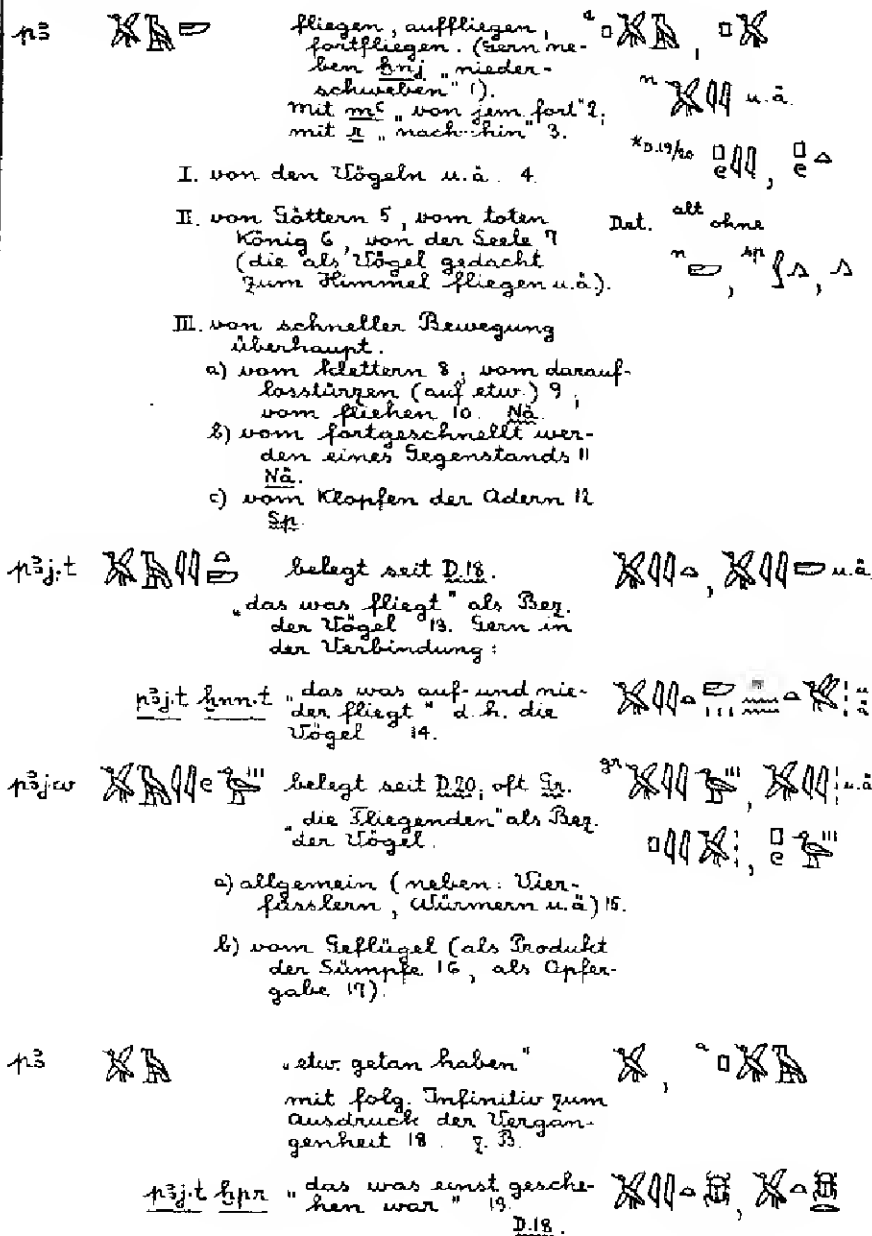 pꜣ 𓅮𓄿𓆃 fliegen, auffliegen, a 𓊪𓅮𓄿, 𓊪𓅮
fortfliegen. (Gern ne-
ben ḫnj „nieder-
schweben" 1).
n 𓅮𓇋𓇋 u.ä.
mit mꜥ „von jem fort" 2;
mit r „nach-hin" 3.
*D.19/20 𓊪𓏲𓇋𓇋, 𓊪𓏲𓂻
I. von den Vögeln u.ä. 4.
II. von Göttern 5, vom toten Det. alt ohne
König 6, von der Seele 7
(die als Vögel gedacht n 𓆃, sp 𓂻
zum Himmel fliegen u.ä).
III. von schneller Bewegung
überhaupt.
a) vom Klettern 8; vom darauf-
losstürzen (auf etw.) 9;
vom fliehen 10. Nä.
b) vom fortgeschnellt wer-
den eines Gegenstands 11
Nä.
c) vom Klopfen der Adern 12
Sp.
pꜣj.t 𓅮𓄿𓇋𓇋𓏏𓆃 belegt seit D.18. 𓅮𓇋𓇋𓏏, 𓅮𓇋𓇋𓆃 u.ä.
„das was fliegt" als Bez.
der Vögel 13. Gern in
der Verbindung:
pꜣj.t ḫnn.t „das was auf- und nie-
der fliegt" d.h. die
Vögel 14.
pꜣjw 𓅮𓄿𓇋𓇋𓏲𓅭𓏥 belegt seit D.20; oft Gr. gr 𓅮𓇋𓇋𓅭𓏥, 𓅮𓇋𓇋𓏥 u.ä
„die Fliegenden" als Bez.
der Vögel. 𓊪𓇋𓇋𓅮𓏥, 𓊪𓏲𓅭𓏥
a) allgemein (neben: Vier-
füsslern, Würmern u.ä) 15.
b) vom Geflügel (als Produkt
der Sümpfe 16, als Opfer-
gabe 17).
pꜣ 𓅮𓄿 „etw. getan haben" 𓅮, a 𓊪𓅮𓄿
mit folg. Infinitiv zum
Ausdruck der Vergan-
genheit 18. z.B.
pꜣj.t ḫpr „das was einst gesche-
hen war" 19. 𓅮𓇋𓇋𓏏𓆣, 𓅮𓏏𓆣
D.18.